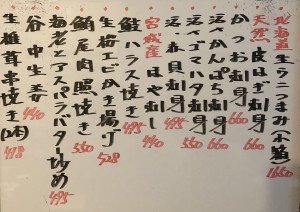 北海道 生ウニつまみ(小箱) 1650
天然 皮はぎ刺身 660
かつお刺身 660
活、かんぱち刺身 660
活、イゴマハタ刺身 550
活、赤貝刺身 495
宮城産 ほや刺し 440
鮭ハラス焼き 495
生桜エビかき揚げ 528
鮪尾肉照焼き 550
海老とアスパラバター炒め 495
谷中生姜 440
生椎茸串焼き(2本) 418